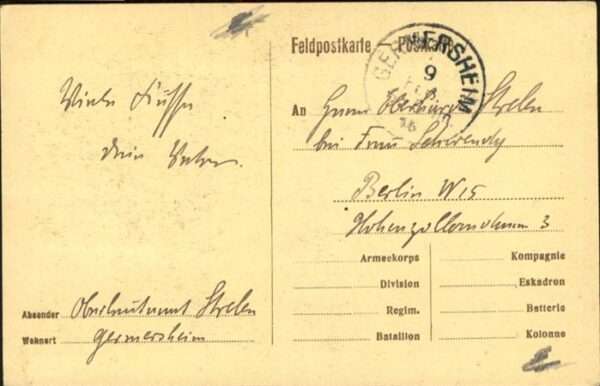 Feldpostkarte — Postkarte
GERMERSHEIM
9
Viele Küsse
dein Vater.
An Herrn Strelen
bei Frau
Berlin W 15
3
Armeekorps
Kompagnie
Division
Eskadron
Regim.
Batterie
Bataillon
Kolonne
Absender Oberleutnant Strelen
Wohnort Germersheim